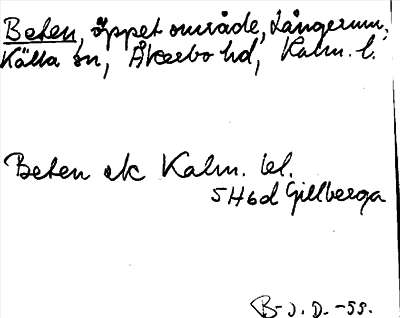 Beten, öppet område, Långerum,
Källa sn, Åkerbo hd, Kalm. l.
Beten ek Kalm. bl.
5H6d Gillberga
B-J. D. -55.